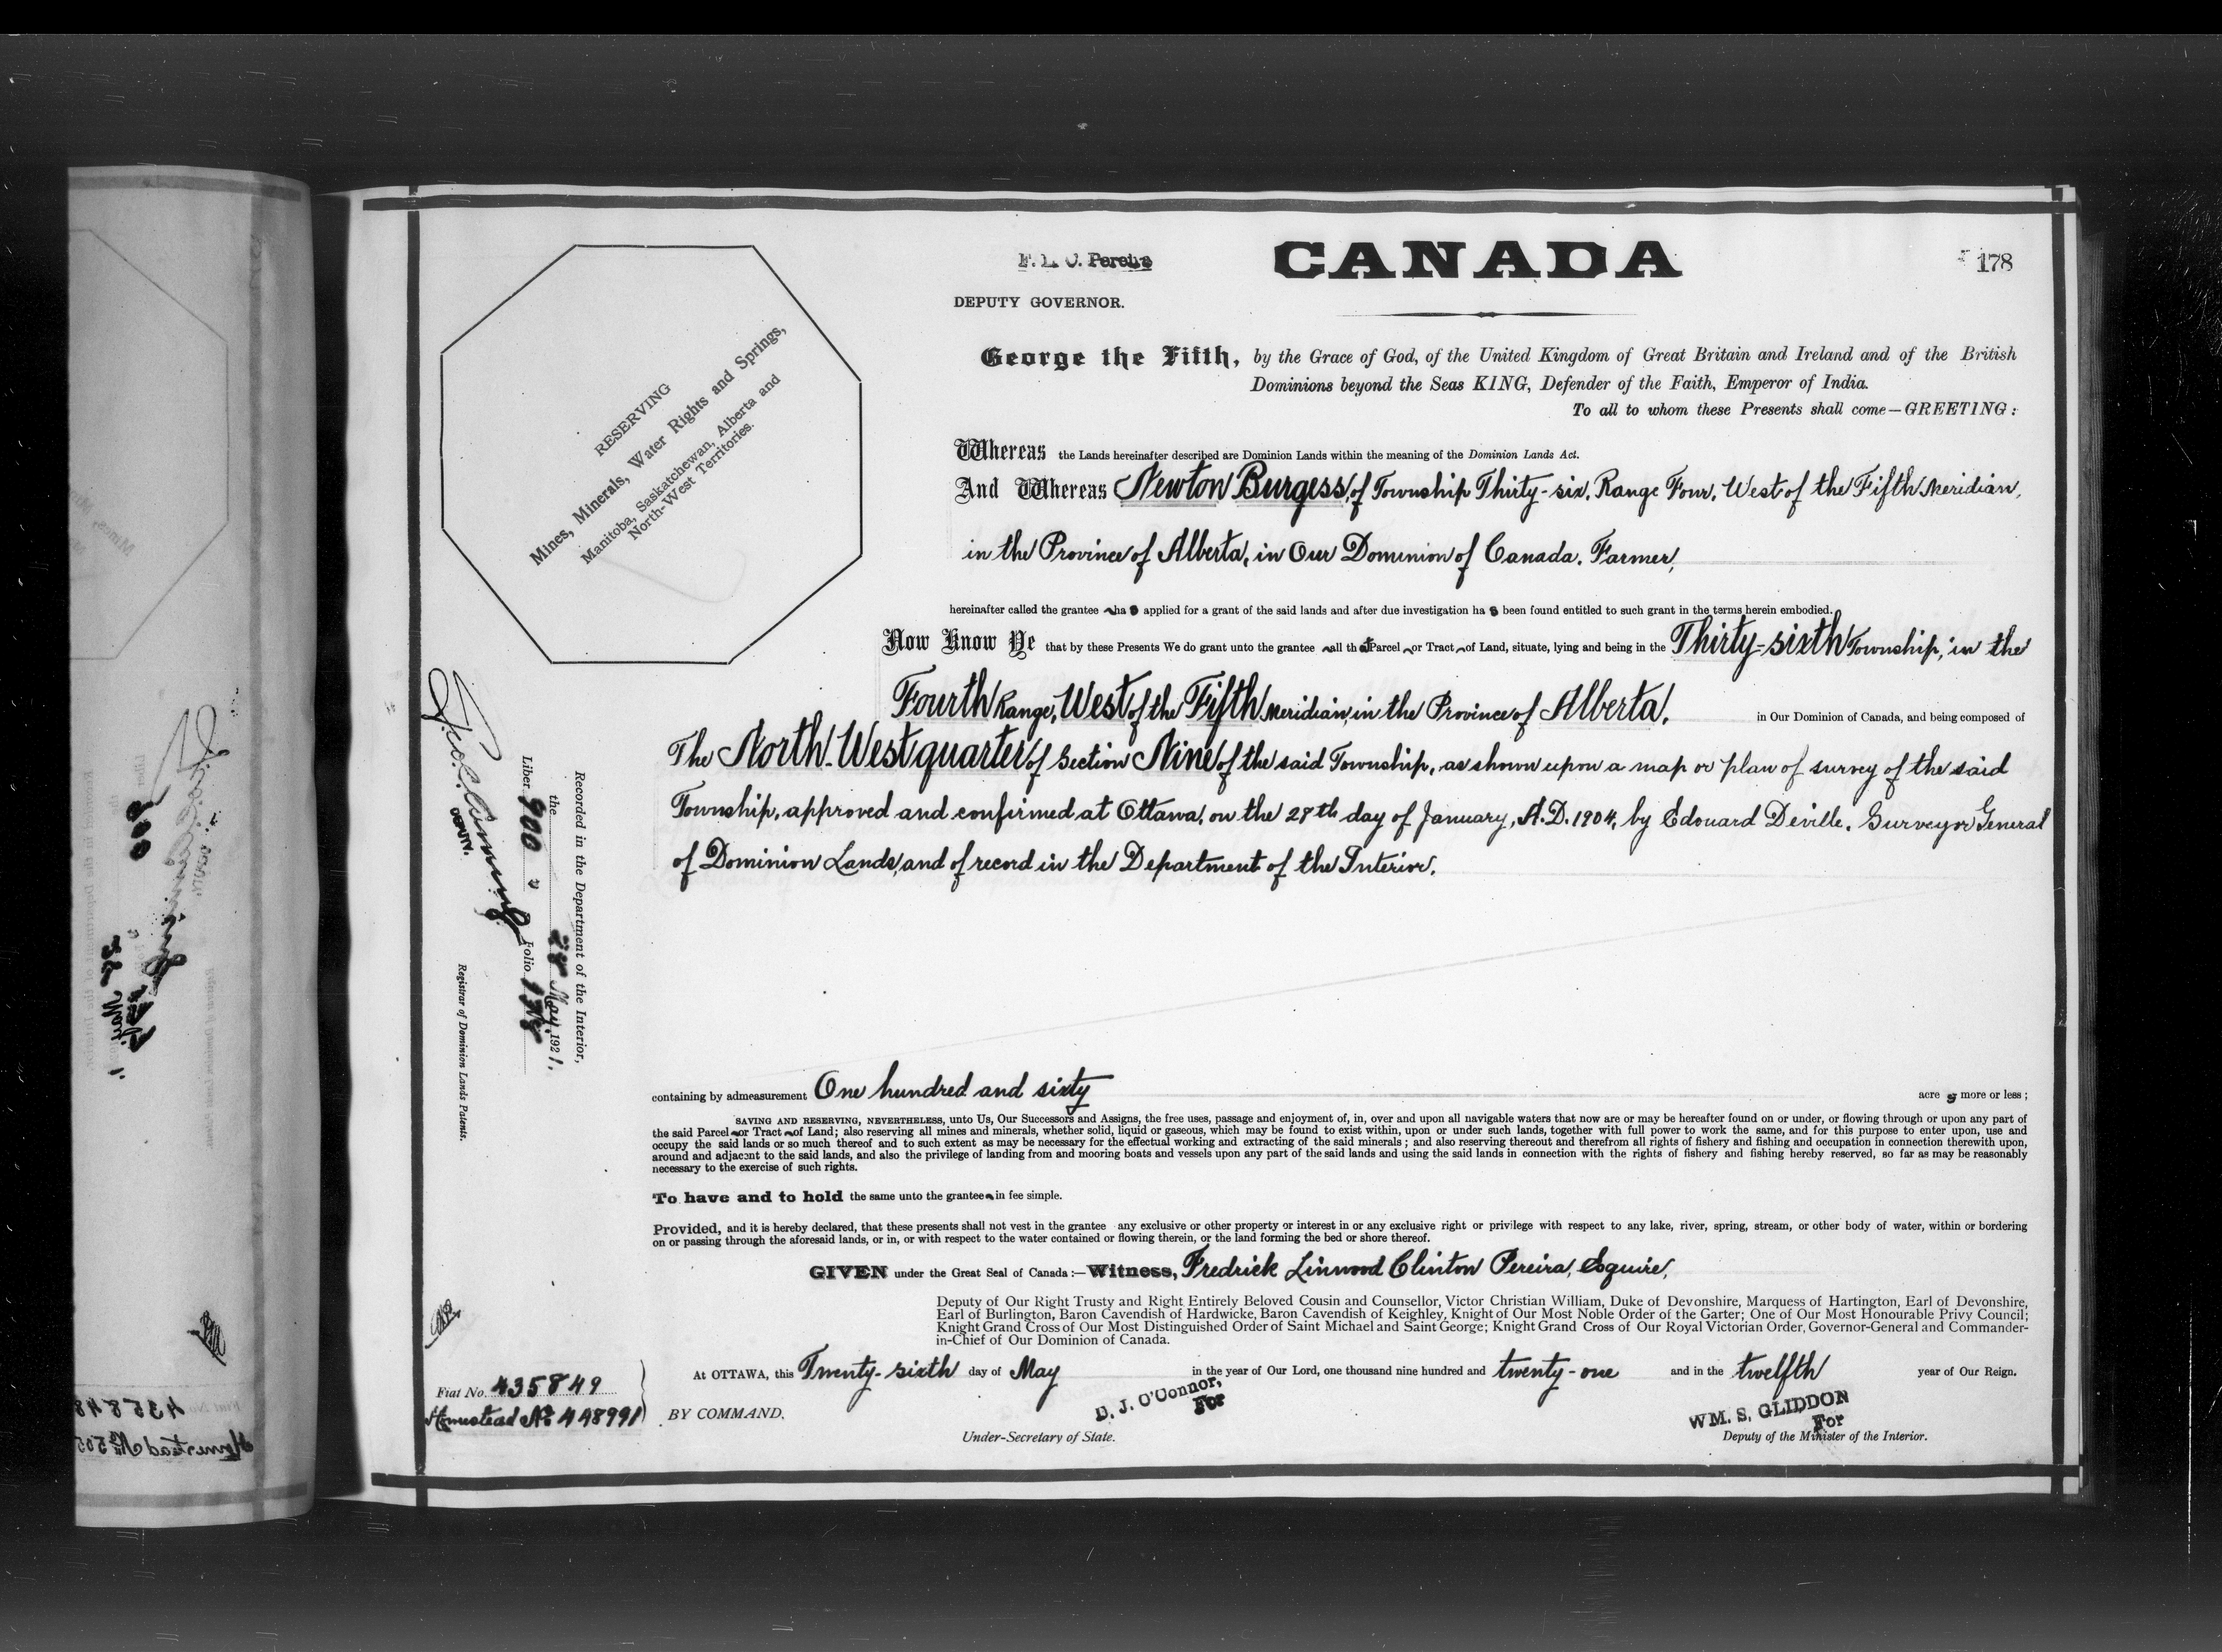 CANADA
178
F. L. C. Pereira
DEPUTY GOVERNOR.
RESERVING
Mines, Minerals, Water Rights and Springs,
Manitoba, Saskatchewan, Alberta and
North-West Territories.
George the Fifth, by the Grace of God, of the United Kingdom of Great Britain and Ireland and of the British
Dominions beyond the Seas KING, Defender of the Faith, Emperor of India.
To all to whom these Presents shall come—GREETING:
Whereas the Lands hereinafter described are Dominion Lands within the meaning of the Dominion Lands Act.
And Whereas Newton Burgess, of Township Thirty-six, Range Four, West of the Fifth Meridian,
in the Province of Alberta, in Our Dominion of Canada, Farmer,
hereinafter called the grantee has applied for a grant of the said lands and after due investigation has been found entitled to such grant in the terms herein embodied.
Now Know Ye that by these Presents We do grant unto the grantee all that Parcel or Tract of Land, situate, lying and being in the Thirty-sixth Township, in the
Fourth Range, West of the Fifth Meridian, in the Province of Alberta, in Our Dominion of Canada, and being composed of
The North-West quarter of Section Nine of the said Township, as shown upon a map or plan of survey of the said
Township, approved and confirmed at Ottawa, on the 28th day of January, A.D. 1904, by Edouard Deville, Surveyor General
of Dominion Lands, and of record in the Department of the Interior.
containing by admeasurement One hundred and sixty acres more or less;
SAVING AND RESERVING, NEVERTHELESS, unto Us, Our Successors and Assigns, the free uses, passage and enjoyment of, in, over and upon all navigable waters that now are or may be hereafter found on or under, or flowing through or upon any part of
the said Parcel or Tract of Land; also reserving all mines and minerals, whether solid, liquid or gaseous, which may be found to exist within, upon or under such lands, together with full power to work the same, and for this purpose to enter upon, use and
occupy the said lands or so much thereof and to such extent as may be necessary for the effectual working and extracting of the said minerals; and also reserving thereout and therefrom all rights of fishery and fishing and occupation in connection therewith upon,
around and adjacent to the said lands, and also the privilege of landing from and mooring boats and vessels upon any part of the said lands and using the said lands in connection with the rights of fishery and fishing hereby reserved, so far as may be reasonably
necessary to the exercise of such rights.
To have and to hold the same unto the grantee in fee simple.
Provided, and it is hereby declared, that these presents shall not vest in the grantee any exclusive or other property or interest in or any exclusive right or privilege with respect to any lake, river, spring, stream, or other body of water, within or bordering
on or passing through the aforesaid lands, or in, or with respect to the water contained or flowing therein, or the land forming the bed or shore thereof.
GIVEN under the Great Seal of Canada:—Witness, Fredrick Linwood Clinton Pereira, Esquire,
Deputy of Our Right Trusty and Right Entirely Beloved Cousin and Counsellor, Victor Christian William, Duke of Devonshire, Marquess of Hartington, Earl of Devonshire,
Earl of Burlington, Baron Cavendish of Hardwicke, Baron Cavendish of Keighley, Knight of Our Most Noble Order of the Garter; One of Our Most Honourable Privy Council;
Knight Grand Cross of Our Most Distinguished Order of Saint Michael and Saint George; Knight Grand Cross of Our Royal Victorian Order, Governor-General and Commander-
in-Chief of Our Dominion of Canada.
At OTTAWA, this Twenty-sixth day of May in the year of Our Lord, one thousand nine hundred and twenty-one and in the twelfth year of Our Reign.
BY COMMAND,
D. J. O'Connor,
For
Under-Secretary of State.
WM. S. GLIDDON
For
Deputy of the Minister of the Interior.
Recorded in the Department of the Interior,
the 28 May, 1921.
Liber 900 Folio 178
DEPUTY.
Registrar of Dominion Lands Patents.
Fiat No. 435849
Homestead No.